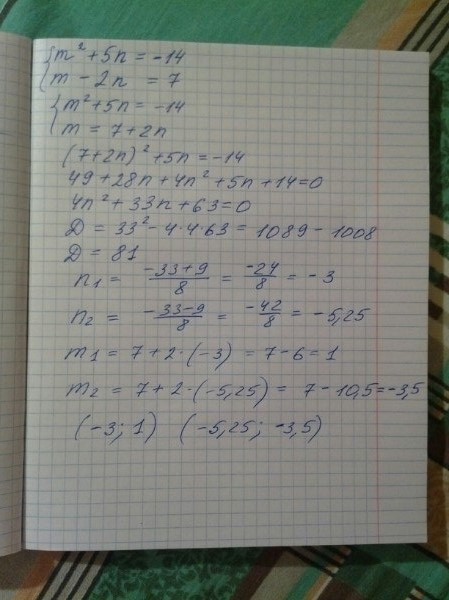 m² + 5n = -14
m - 2n = 7
m² + 5n = -14
m = 7 + 2n
(7 + 2n)² + 5n = -14
49 + 28n + 4n² + 5n + 14 = 0
4n² + 33n + 63 = 0
Д = 33² - 4·4·63 = 1089 - 1008
Д = 81
n₁ = (-33+9)/8 = -24/8 = -3
n₂ = (-33-9)/8 = -42/8 = -5,25
m₁ = 7 + 2·(-3) = 7 - 6 = 1
m₂ = 7 + 2·(-5,25) = 7 - 10,5 = -3,5
(-3; 1) (-5,25; -3,5)